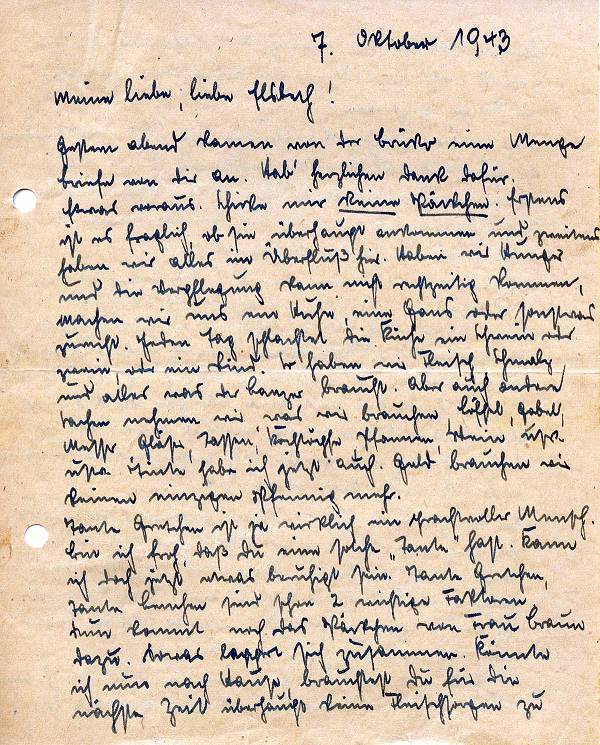 7. Oktober 1943
Meine liebe, liebe Elsbeth!
Gestern abend kamen von der Brücke eine Menge
Briefe von Dir an. Hab' herzlichen Dank dafür.
Etwas voraus. Schicke mir keine Päckchen. Erstens
ist es fraglich, ob sie überhaupt ankommen und zweitens
haben wir alles im Überfluß hier. Haben wir Hunger
und die Verpflegung kann nicht rechtzeitig kommen,
machen wir uns ein Huhn, eine Gans oder sonstwas
zurecht. Jeden Tag schlachtet die Küche ein Schwein oder
zwein, oder ein Rind. So haben wir Fleisch, Schmalz,
und alles was der Lanzer braucht. Aber auch andere
Sachen nehmen wir, was wir brauchen Löffel, Gabel,
Messer Gläser, Tassen, Kochtöpfe Pfannen, Wein usw.
usw. Tinte habe ich jetzt auch. Geld brauchen wir
keinen einzigen Pfennig mehr.
Tante Gretchen ist ja wirklich ein prachtvoller Mensch.
Bin ich froh, daß Du eine solche „Tante" hast. Kann
ich doch jetzt etwas beruhigt sein. Tante Gretchen,
Tante Lenchen sind schon 2 wichtige Faktoren
Dann kommt noch das Päckchen von Frau Braun
dazu. Sowas läppert sich zusammen. Könnte
ich nun nach Hause, brauchtest Du für die
nächste Zeit überhaupt keine Fleischsorgen zu